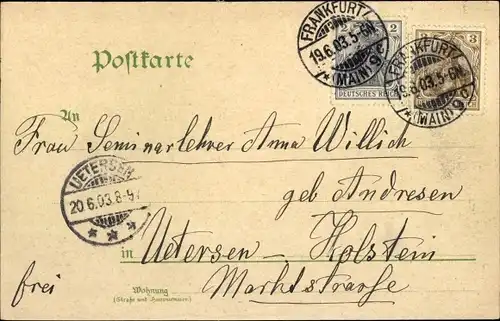 FRANKFURT
19.6.03.5-6N
* (MAIN) 9c
FRANKFURT
19.6.03.5-6N
* (MAIN) 9c
2
DEUTSCHES REICH
3
Postkarte
An
Frau Seminarlehrer Anna Willich
geb Andresen
UETERSEN
20.6.03.8-9V
* * *
in Uetersen - Holstein
frei
Marktstrasse
Wohnung
(Straße und Hausnummer)